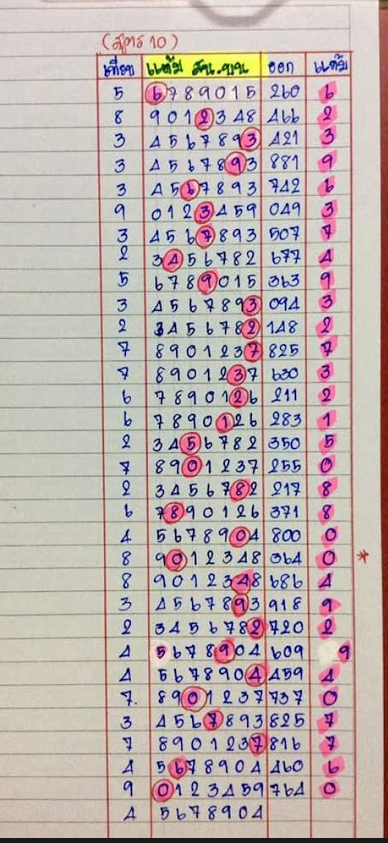 (สูตร 10)
แต้ม ออก แต้ม
5 6789015 260 6
8 9012348 466 2
3 4567893 421 3
3 4567893 881 9
3 4567893 742 6
9 0123459 049 3
3 4567893 507 7
2 3456782 677 4
5 6789015 363 9
3 4567893 094 3
2 3456782 148 2
7 8901237 825 7
7 8901237 630 3
6 7890126 211 2
6 7890126 283 1
2 3456782 350 5
7 8901237 255 0
2 3456782 217 8
6 7890126 371 8
4 5678904 800 0
8 9012348 364 0 *
8 9012348 686 4
3 4567893 918 9
2 3456782 720 2
4 5678904 609 9
4 5678904 459 4
7. 8901237 737 0
3 4567893 825 7
7 8901237 816 7
4 5678904 460 6
9 0123459 764 0
4 5678904